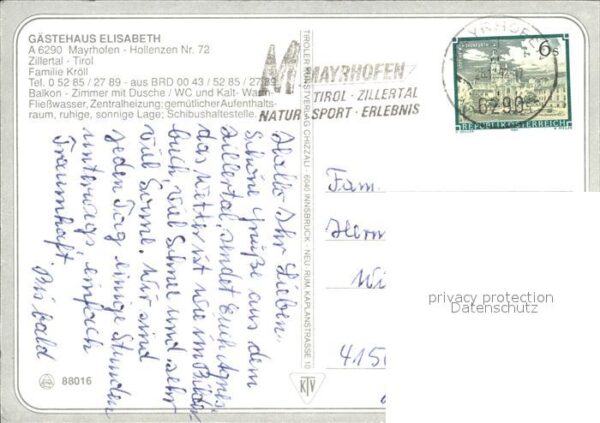 GÄSTEHAUS ELISABETH
A 6290 Mayrhofen - Hollenzen Nr. 72
Zillertal - Tirol
Familie Kröll
Tel. 0 52 85 / 27 89 - aus BRD 00 43 / 52 85 / 27 89
Balkon - Zimmer mit Dusche / WC und Kalt- Warm-
Fließwasser, Zentralheizung; gemütlicher Aufenthalts-
raum, ruhige, sonnige Lage; Schibushaltestelle.
Hallo Ihr Lieben.
Schöne Grüße aus dem
Zillertal, sendet Euch Agnes
das Wetter ist wie im Bilder
buch, viel Schnee und sehr
viel Sonne. Wir sind
jeden Tag einige Stunden
unterwegs, einfach
Traumhaft.
Bis bald
88016
TIROLER KUNSTVERLAG CHIZZALI · 6040 INNSBRUCK - NEU-RUM KAPLANSTRASSE 10
KTV
MAYRHOFEN
TIROL · ZILLERTAL
NATUR · SPORT · ERLEBNIS
MAYRHOFEN
6290
6 S
REPUBLIK ÖSTERREICH
Fam.
415
privacy protection
Datenschutz